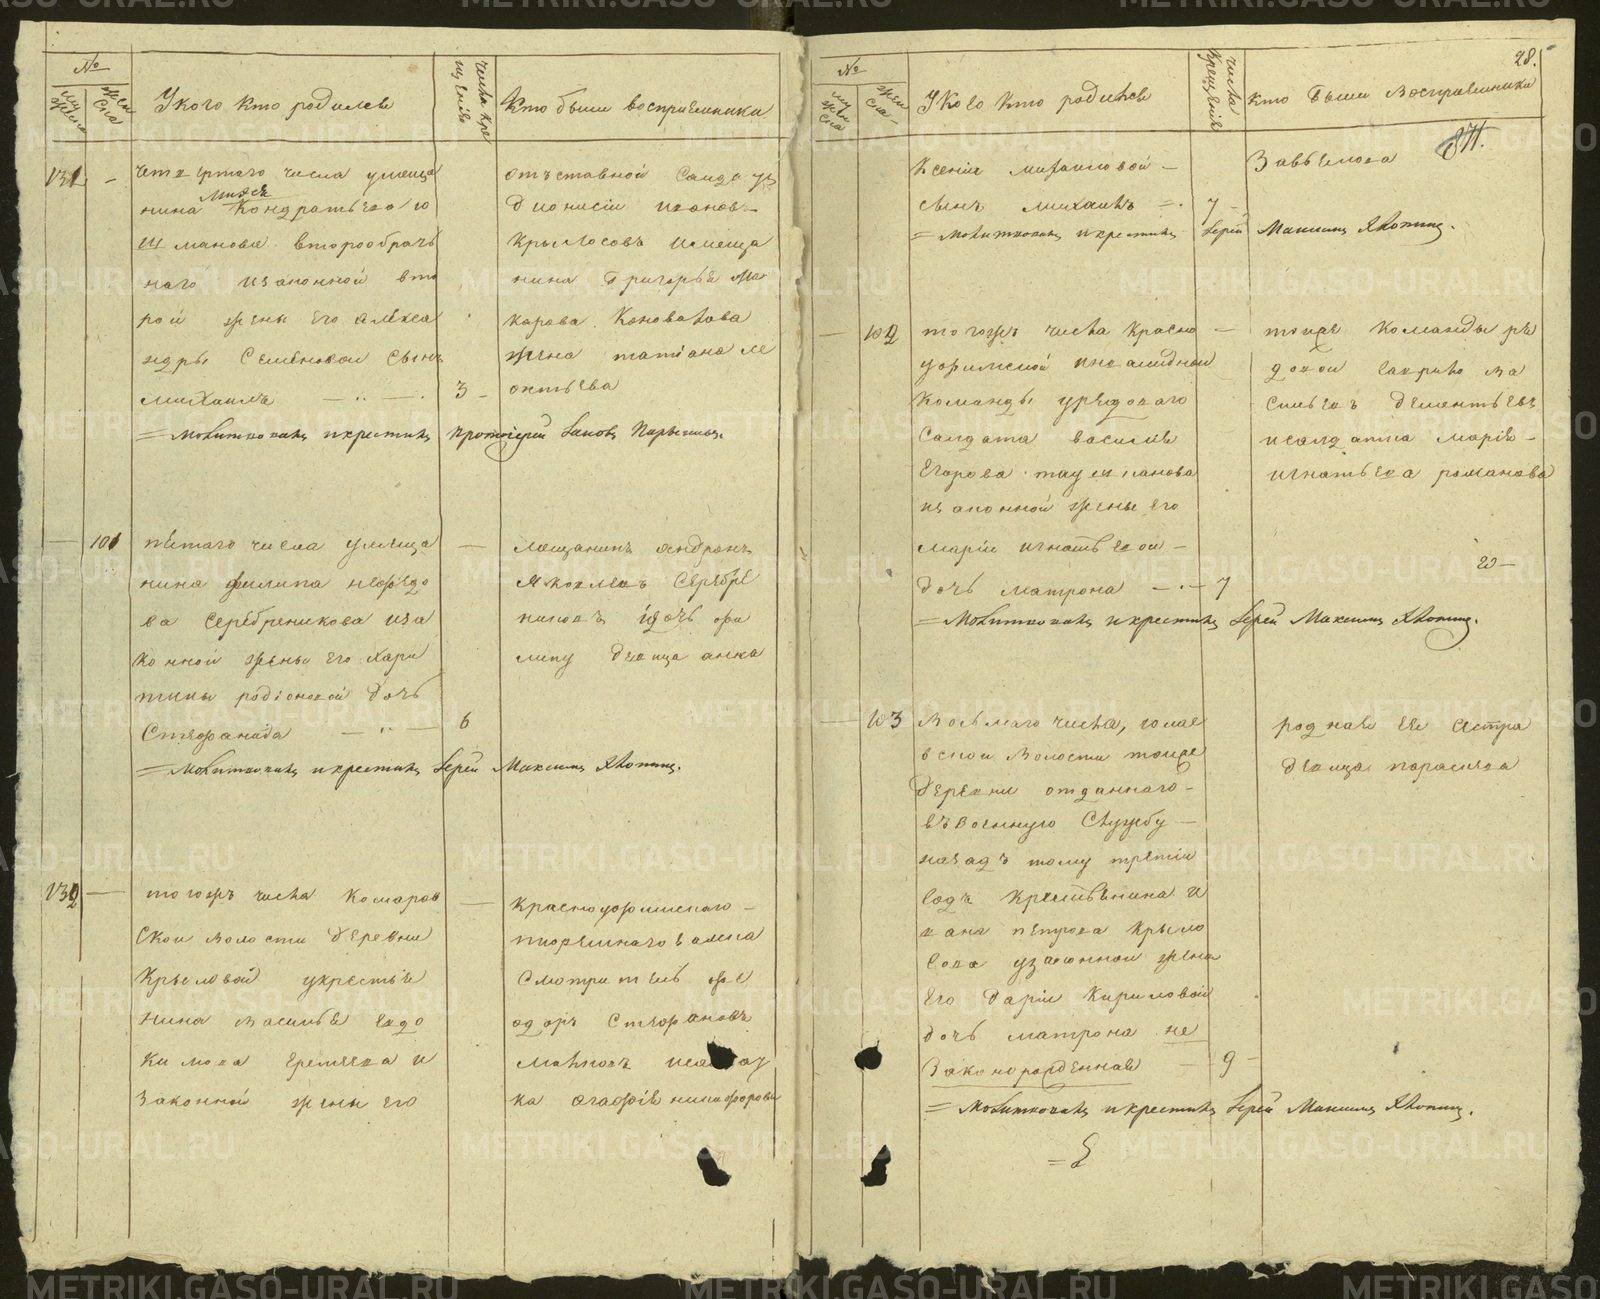 №
мужеска
женска
У кого кто родился
числа крещения
кто были восприемники
131 –
четвертого числа у меща
нина Кондратьева
второобрач
наго изаконной вто
рой жены его алекса
ндры Семеновой сынъ
михаилъ
3 –
отъставной Салдатъ
Дионисiй ивановъ
Крылосовъ имеща
нина Григорья Ма
карова Коновалова
жена татiана ле
онтьева
= молитвовалъ и крестилъ протоiерей Iаковъ
— 101
пятаго числа умеща
нина филипа нефедо
ва Серебреникова иза
конной жены его Хари
тины родiоновой дочь
Стефанида
6
мещанинъ андронъ
Яковлевъ Серебре
никовъ идочь фи
липу девица анна
= молитвовалъ и крестилъ Iерей Максимъ Хлопинъ.
132 —
тогожъ числа Комаров
ской волости деревни
Крыловой укрестья
нина василья евдо
кимова еремеева и
законной жены его
Красноуфимскаго
тюремнаго замка
Смотритель фе
одоръ Стефановъ
ка агафiя никифорова
28.
№
мужеска
женска
У кого кто родился
числа крещения
кто были восприемники
Ксенiи михаиловой –
сынъ михаилъ
7 –
Завьялова
= молитвовалъ и крестилъ Iерей Максимъ Хлопинъ.
— 102
тогожъ числа Красно
уфимской инвалидной
Команды уредоваго
Салдата василiя
Егорова
изаконной жены его
марiи игнатьевой –
дочь матрона
7
тойже команды ре
довой гаврило ва
сильевъ дементьевъ
исалдатка марiя –
игнатьева романова
= Молитвовалъ и крестилъ Iерей Максимъ Хлопинъ.
— 103
восьмаго числа,
волости тойже
Деревни отданнаго –
въ военную Службу –
назадъ тому третiй
годъ Крестьянина и
вана петрова крыло
сова узаконной жены
его дарiи Кириловой
дочь матрона не
законорожденная
9 –
родная ея сестра
девица парасковья
= Молитвовалъ и крестилъ Iерей Максимъ Хлопинъ.
METRIKI.GASO-URAL.RU